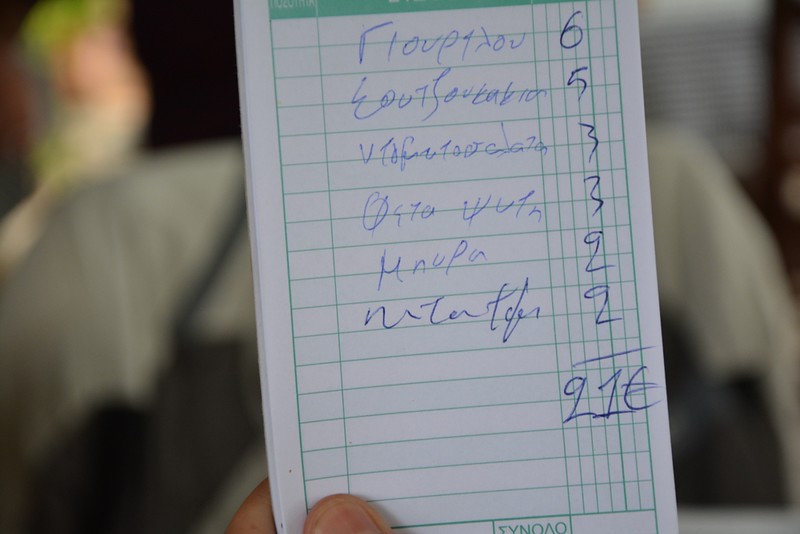 ΠΟΣΟΤΗΤ
Γιουρτλου 6
Σουτζουκακια 5
ντοματοσαλατα 3
Φετα ψητη 3
Μπυρα 2
πατατες 2
21€
ΣΥΝΟΛΟ